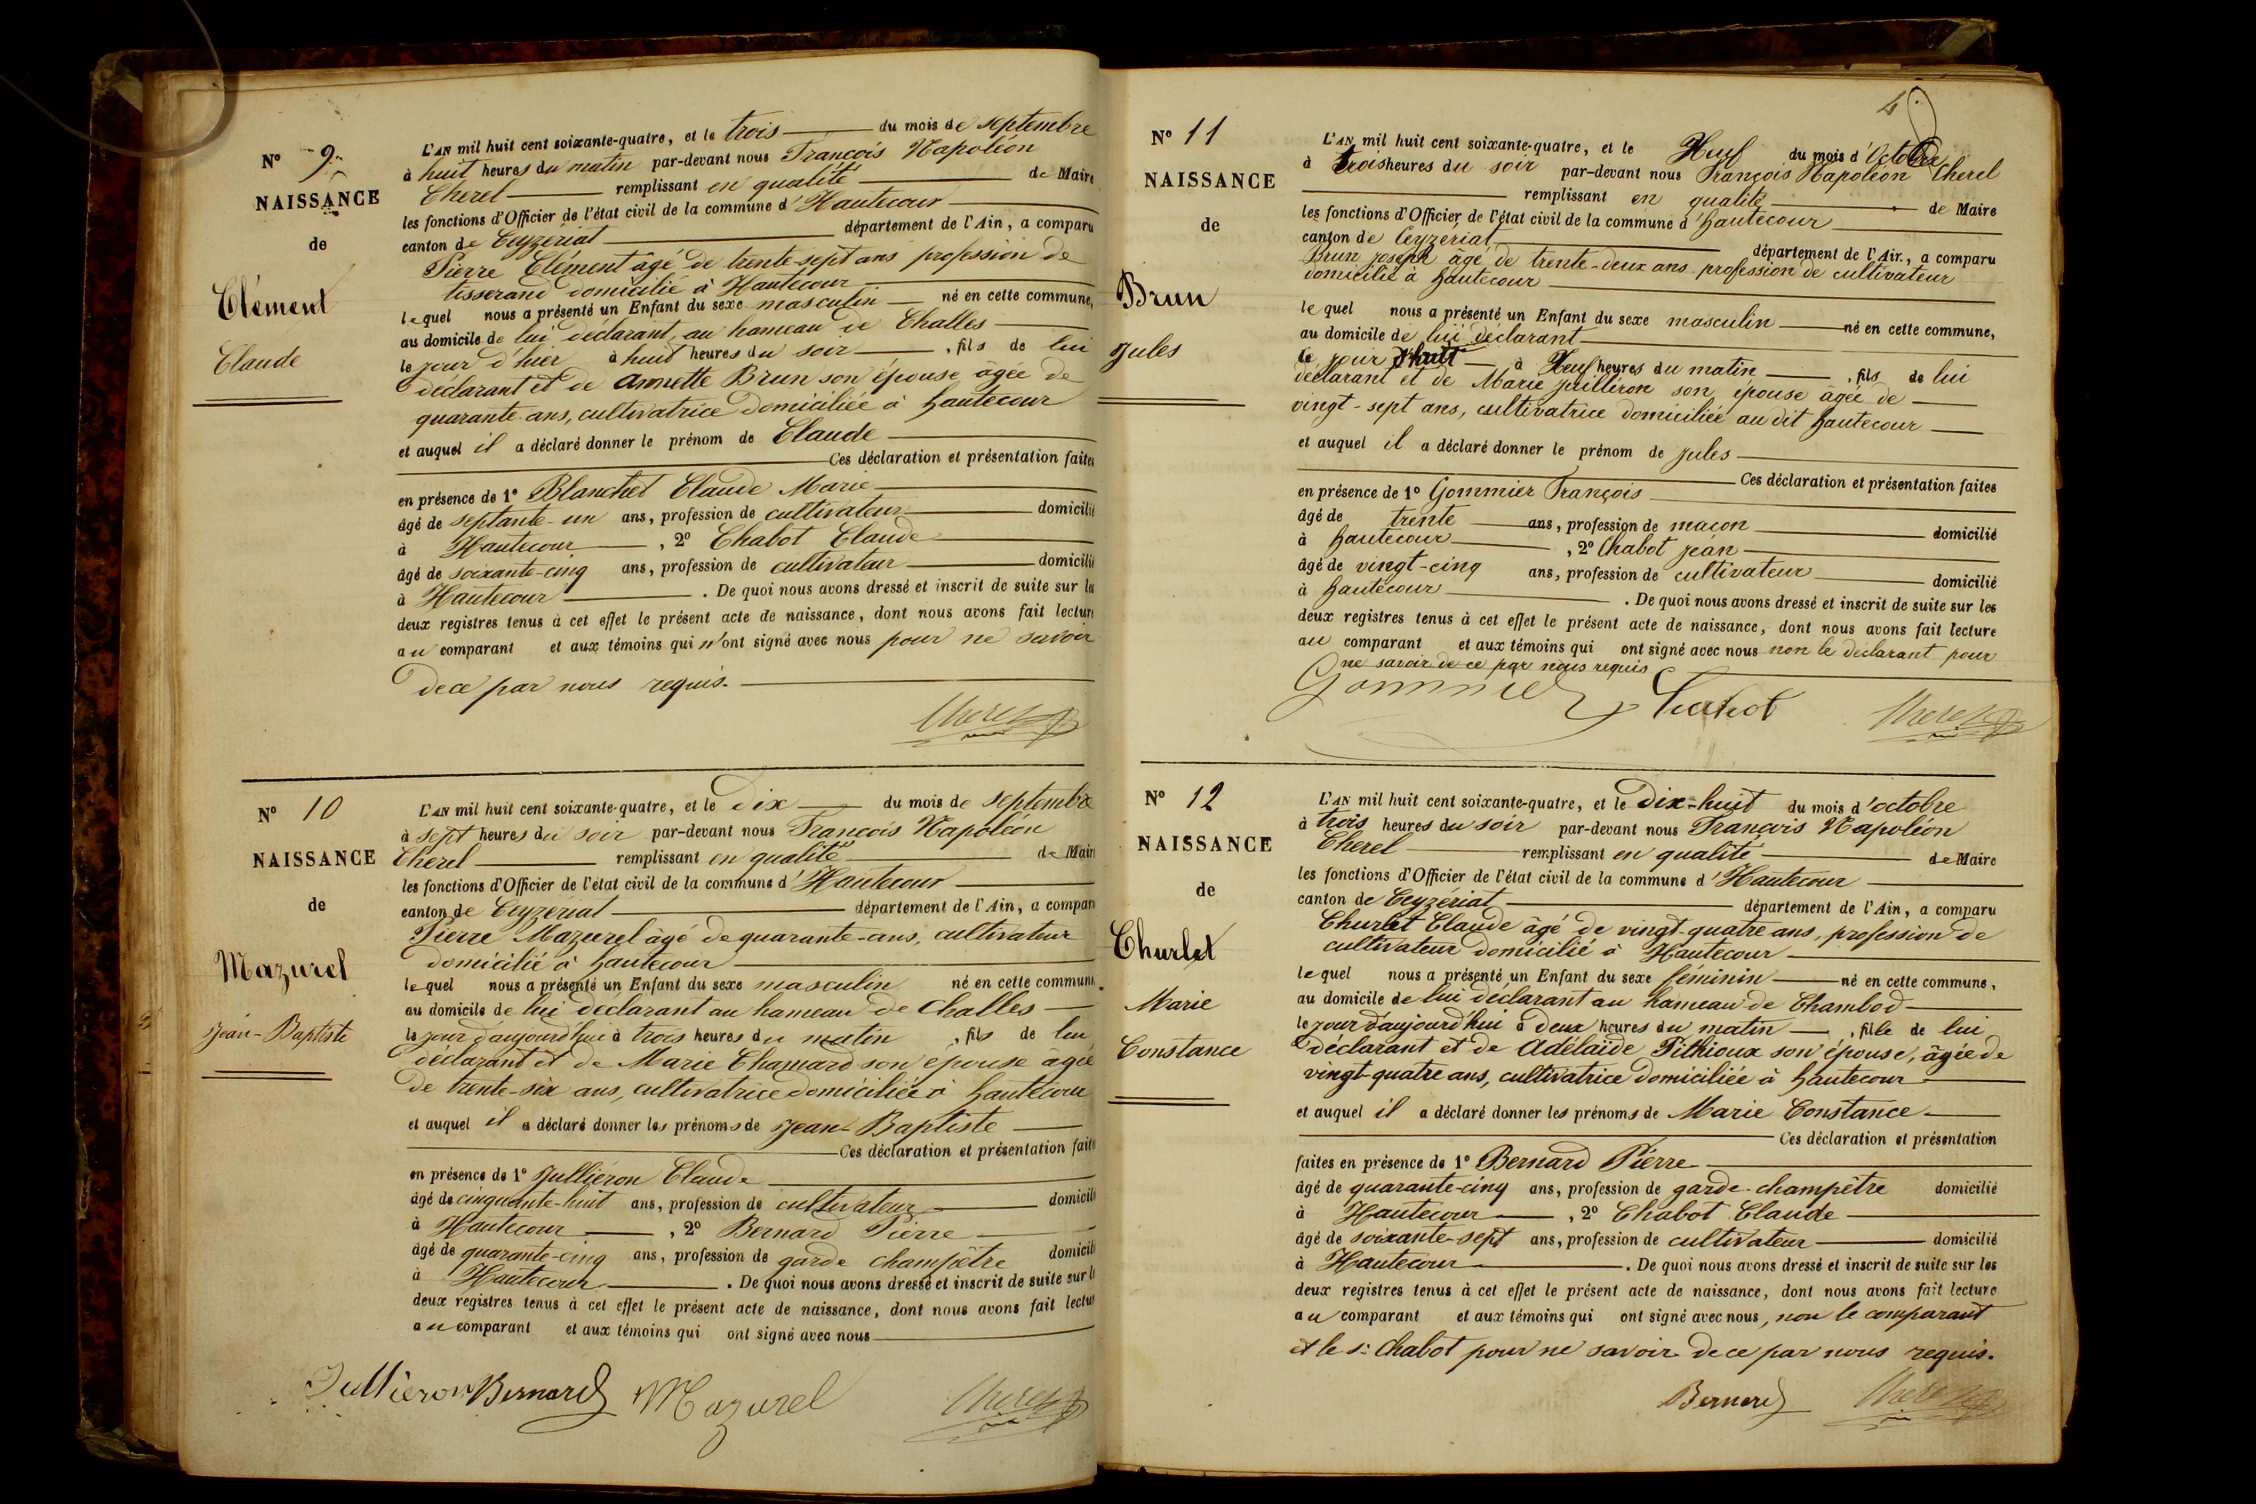 N° 9
NAISSANCE
de
Clément
Claude
L'AN mil huit cent soixante-quatre, et le trois du mois de septembre
à huit heures du matin par-devant nous François Napoléon
Cherel remplissant en qualité de Maire
les fonctions d'Officier de l'état civil de la commune d'Hautecour
canton de Ceyzériat département de l'Ain, a comparu
Pierre Clément âgé de trente-sept ans profession de
tisserand domicilié à Hautecour
lequel nous a présenté un Enfant du sexe masculin né en cette commune,
au domicile de lui déclarant au hameau de Challes
le jour d'hier à huit heures du soir, fils de lui
déclarant et de Annette Brun son épouse âgée de
quarante ans, cultivatrice domiciliée à hautecour
et auquel il a déclaré donner le prénom de Claude
Ces déclaration et présentation faites
en présence de 1° Blanchet Claude Marie
âgé de septante-un ans, profession de cultivateur domicilié
à Hautecour, 2° Chabot Claude
âgé de soixante-cinq ans, profession de cultivateur domicilié
à Hautecour. De quoi nous avons dressé et inscrit de suite sur les
deux registres tenus à cet effet le présent acte de naissance, dont nous avons fait lecture
au comparant et aux témoins qui n'ont signé avec nous pour ne savoir
de ce par nous requis.
Cherel
N° 10
NAISSANCE
de
Mazurel
Jean-Baptiste
L'AN mil huit cent soixante-quatre, et le dix du mois de septembre
à sept heures du soir par-devant nous François Napoléon
Cherel remplissant en qualité de Maire
les fonctions d'Officier de l'état civil de la commune d'Hautecour
canton de Ceyzériat département de l'Ain, a comparu
Pierre Mazurel âgé de quarante-ans, cultivateur
domicilié à hautecour
lequel nous a présenté un Enfant du sexe masculin né en cette commune,
au domicile de lui déclarant au hameau de Challes
le jour d'aujourd'hui à trois heures du matin, fils de lui
déclarant et de Marie Chamard son épouse âgée
de trente-six ans, cultivatrice domiciliée à hautecour
et auquel il a déclaré donner les prénoms de Jean-Baptiste
Ces déclaration et présentation faites
en présence de 1° Julliéron Claude
âgé de cinquante-huit ans, profession de cultivateur domicilié
à Hautecour, 2° Bernard Pierre
âgé de quarante-cinq ans, profession de garde champêtre domicilié
à Hautecour. De quoi nous avons dressé et inscrit de suite sur les
deux registres tenus à cet effet le présent acte de naissance, dont nous avons fait lecture
au comparant et aux témoins qui ont signé avec nous
Jullieron Bernard Mazurel Cherel
N° 11
NAISSANCE
de
Brun
Jules
L'AN mil huit cent soixante-quatre, et le Neuf du mois d'Octobre
à trois heures du soir par-devant nous François Napoléon Cherel
remplissant en qualité de Maire
les fonctions d'Officier de l'état civil de la commune d'hautecour
canton de Ceyzériat département de l'Ain, a comparu
Brun joseph âgé de trente-deux ans profession de cultivateur
domicilié à hautecour
lequel nous a présenté un Enfant du sexe masculin né en cette commune,
au domicile de lui déclarant
le jour d'huit à Neuf heures du matin, fils de lui
déclarant et de Marie juilléron son épouse âgée de
vingt-sept ans, cultivatrice domiciliée au dit hautecour
et auquel il a déclaré donner le prénom de jules
Ces déclaration et présentation faites
en présence de 1° Gommier François
âgé de trente ans, profession de maçon domicilié
à hautecour, 2° Chabot jean
âgé de vingt-cinq ans, profession de cultivateur domicilié
à hautecour. De quoi nous avons dressé et inscrit de suite sur les
deux registres tenus à cet effet le présent acte de naissance, dont nous avons fait lecture
au comparant et aux témoins qui ont signé avec nous non le déclarant pour
ne savoir de ce par nous requis
Gommier Chabot Cherel
N° 12
NAISSANCE
de
Churlet
Marie
Constance
L'AN mil huit cent soixante-quatre, et le Dix-huit du mois d'octobre
à trois heures du soir par-devant nous François Napoléon
Cherel remplissant en qualité de Maire
les fonctions d'Officier de l'état civil de la commune d'Hautecour
canton de Ceyzériat département de l'Ain, a comparu
Churlet Claude âgé de vingt-quatre ans, profession de
cultivateur domicilié à Hautecour
lequel nous a présenté un Enfant du sexe féminin né en cette commune,
au domicile de lui déclarant au hameau de Chambod
le jour d'aujourd'hui à deux heures du matin, fille de lui
déclarant et de Adélaïde Pithioux son épouse, âgée de
vingt-quatre ans, cultivatrice domiciliée à hautecour
et auquel il a déclaré donner les prénoms de Marie Constance
Ces déclaration et présentation
faites en présence de 1° Bernard Pierre
âgé de quarante-cinq ans, profession de garde-champêtre domicilié
à Hautecour, 2° Chabot Claude
âgé de soixante-sept ans, profession de cultivateur domicilié
à Hautecour. De quoi nous avons dressé et inscrit de suite sur les
deux registres tenus à cet effet le présent acte de naissance, dont nous avons fait lecture
au comparant et aux témoins qui ont signé avec nous, non le comparant
et le s: Chabot pour ne savoir de ce par nous requis.
Bernard Cherel